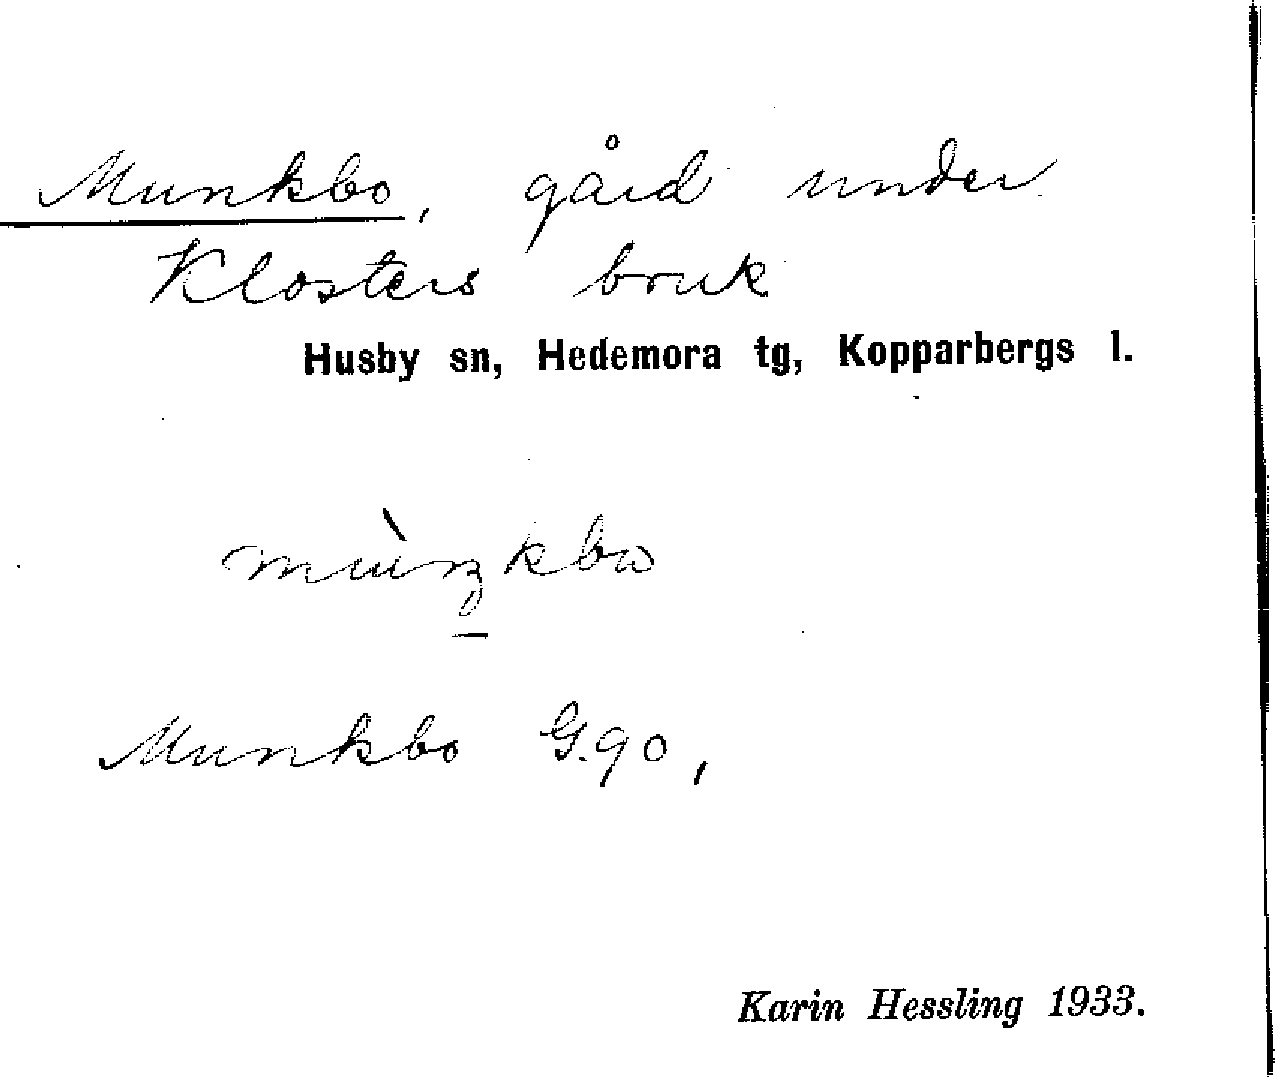 Munkbo, gård under
Klosters bruk
Husby sn, Hedemora tg, Kopparbergs l.
Munkbo G.90,
Karin Hessling 1933.